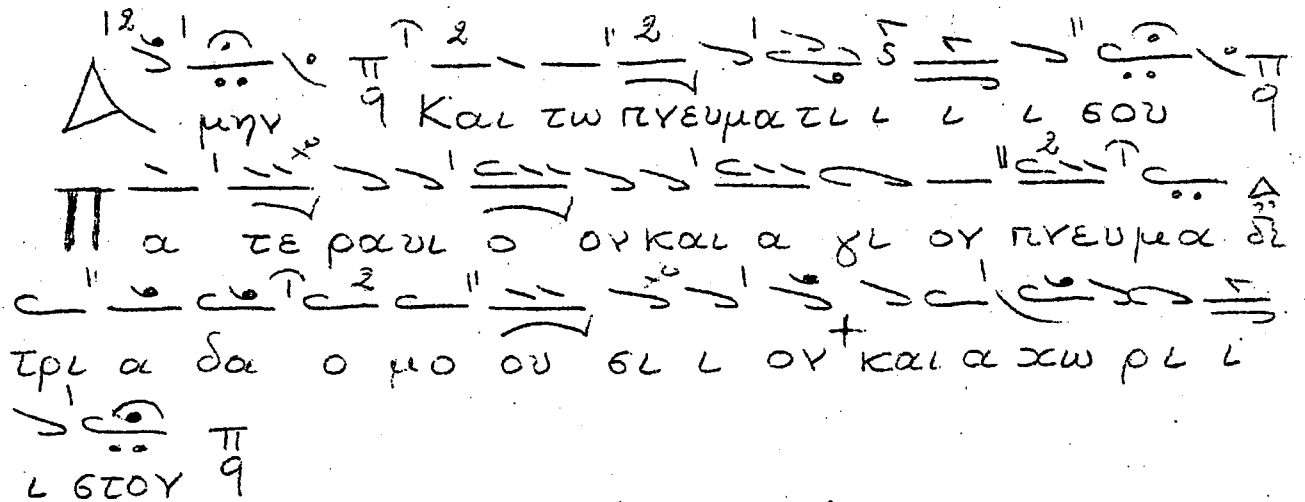 Α μην π q Και τω πνευματι ι ι ι σου π q
Π α τε ραυι ο ονκαι α γι ον πνευμα Δι
τρι α δα ο μο ου σι ι ον + και α χω ρι ι
ι στον π q